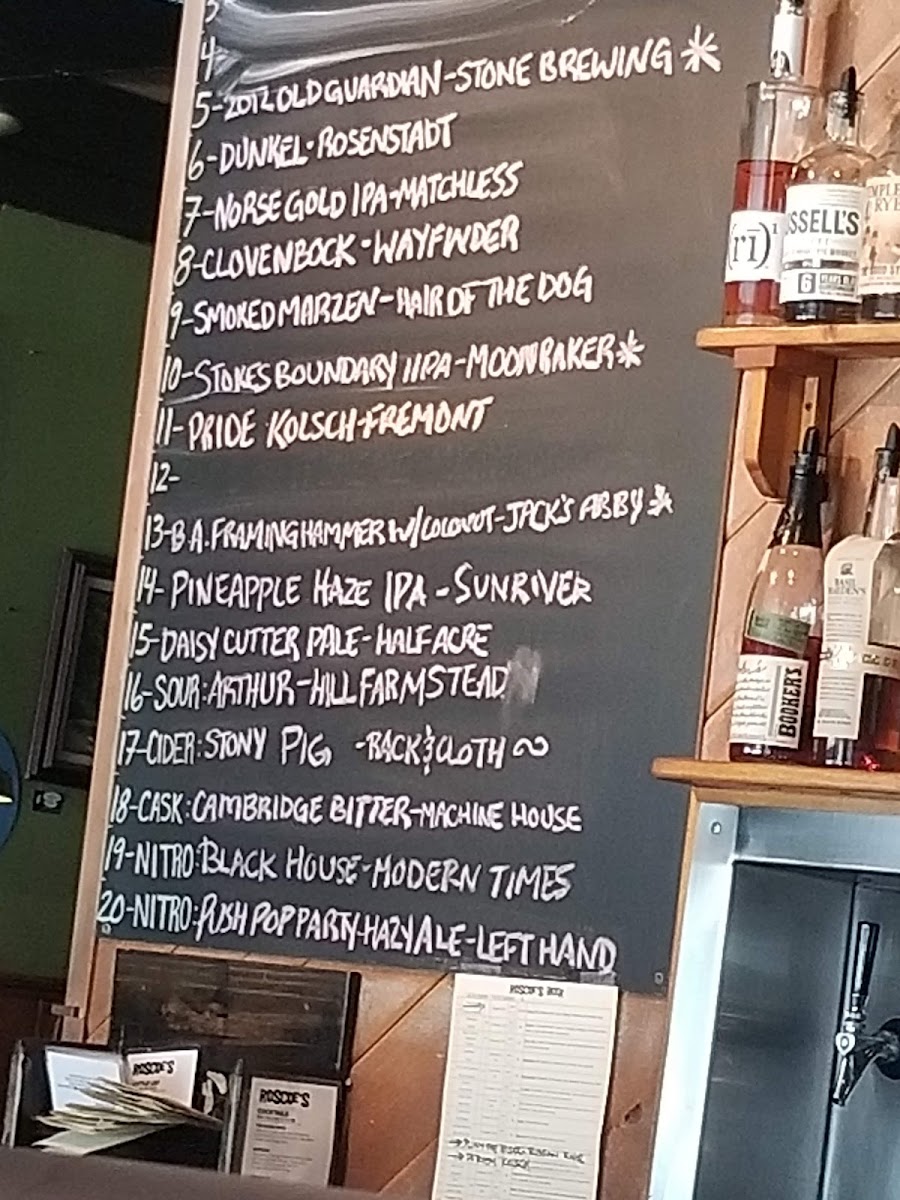 3
4
5-2012 OLD GUARDIAN-STONE BREWING *
6-DUNKEL-ROSENSTADT
7-NORSE GOLD IPA-MATCHLESS
8-CLOVENBOCK-WAYFINDER
9-SMOKED MARZEN-HAIR OF THE DOG
10-STOKES BOUNDARY IIPA-MOONRAKER*
11-PRIDE KOLSCH-FREMONT
12-
13-B.A. FRAMINGHAMMER W/COCONUT-JACK'S ABBY *
14-PINEAPPLE HAZE IPA-SUNRIVER
15-DAISY CUTTER PALE-HALF ACRE
16-SOUR: ARTHUR-HILL FARMSTEAD
17-CIDER: STONY PIG -RACK & CLOTH ~
18-CASK: CAMBRIDGE BITTER-MACHINE HOUSE
19-NITRO: BLACK HOUSE-MODERN TIMES
20-NITRO: PUSH POP PARTY-HAZY ALE-LEFT HAND
(rī)1
SSELL'S
6 YEARS
RYE
BASIL
HAYDEN'S
BOOKER'S
ROSCOE'S
ROSCOE'S
COCKTAILS
ROSCOE'S